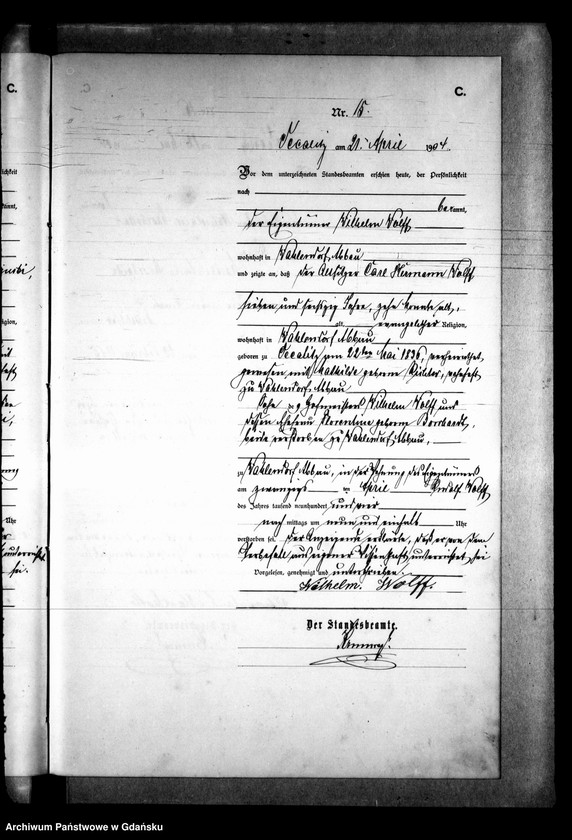 C.
C.
Nr. 15.
Vecalitz am 21. April 1904.
Vor dem unterzeichneten Standesbeamten erschien heute, der Persönlichkeit
nach
bekannt,
der Eigentümer Wilhelm Wolff
wohnhaft in Wahlendorf Abbau
und zeigte an, daß der Altsitzer Carl Hermann Wolff
sieben und sechzig Jahre, zehn Monate alt,
evangelischer Religion,
wohnhaft in Wahlendorf Abbau
geboren zu am 22ten Mai 1836, verheirathet
gewesen mit Mathilde geborene
zu Wahlendorf Abbau
Sohn Wilhelm Wolff und
dessen Ehefrau Florentine geborene Borchardt,
beide verstorben zu Wahlendorf Abbau,
zu Wahlendorf Abbau, in der Wohnung des Eigentümers
am zwanzigsten April Rudolf Wolff
des Jahres tausend neunhundert und vier
nach mittags um neun und einhalb Uhr
verstorben sei. Der Anzeigende erklärte, daß er von dem
Sterbefalle aus eigener Wissenschaft unterrichtet sei
Vorgelesen, genehmigt und unterschrieben.
Wilhelm. Wolff.
Der Standesbeamte.
Archiwum Państwowe w Gdańsku